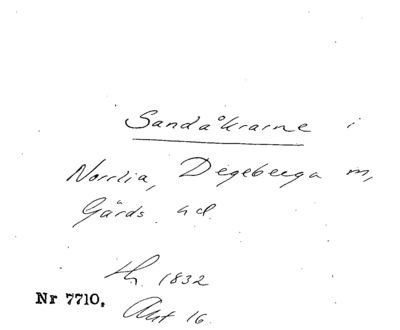 Sandåkrarne i
Norrlia, Degeberga m,
Gärds hd.
1832
Nr 7710.
Akt 16.